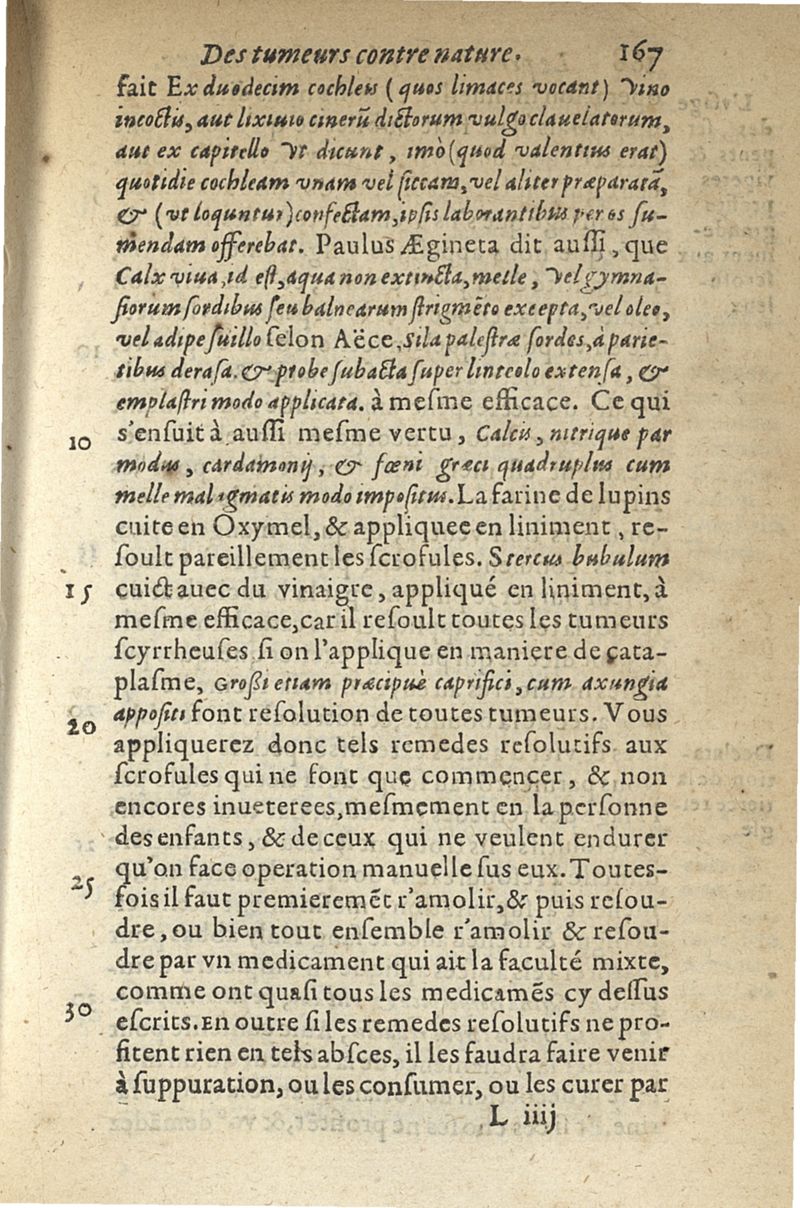 Des tumeurs contre nature. 167
fait Ex duodecim cochleis (quos limaces vocant) Vino
incoctis, aut lixiuio cinerū dictorum vulgo clauelatorum,
aut ex capitello Vt dicunt, imò (quod valentius erat)
quotidie cochleam vnam vel ſiccam, vel aliter præparatā,
& (vt loquuntur) confectam, ipſis laborantibus per os ſu-
mendam offerebat. Paulus Ægineta dit auſſi, que
Calx viua, id eſt, aqua non extincta, melle, Vel gymna-
ſiorum ſordibus ſeu balnearum ſtrigmēto excepta, vel oleo,
vel adipe ſuillo ſelon Aëce, Sila palæſtræ ſordes, à parie-
tibus deraſa. & probe ſubacta ſuper linteolo extenſa, &
emplaſtri modo applicata. à meſme efficace. Ce qui
10 s'enſuit à auſſi meſme vertu, Calcis, nitrique par
modus, cardamonij, & fœni græci quadruplus cum
melle malagmatis modo impoſitus. La farine de lupins
cuite en Oxymel, & appliquee en liniment, re-
ſoult pareillement les ſcrofules. Stercus bubulum
15 cuict auec du vinaigre, appliqué en liniment, à
meſme efficace, car il reſoult toutes les tumeurs
ſcyrrheuſes ſi on l'applique en maniere de cata-
plaſme, Groſſi etiam præcipuè caprifici, cum axungia
20 appoſiti font reſolution de toutes tumeurs. Vous
appliquerez donc tels remedes reſolutifs aux
ſcrofules qui ne font que commencer, & non
encores inueterees, meſmement en la perſonne
des enfants, & de ceux qui ne veulent endurer
qu'on face operation manuelle ſus eux. Toutes-
25 fois il faut premieremēt r'amolir, & puis reſou-
dre, ou bien tout enſemble r'amolir & reſou-
dre par vn medicament qui ait la faculté mixte,
comme ont quaſi tous les medicamēs cy deſſus
30 eſcrits. En outre ſi les remedes reſolutifs ne pro-
fitent rien en tels abſces, il les faudra faire venir
à ſuppuration, ou les conſumer, ou les curer par
L iiij